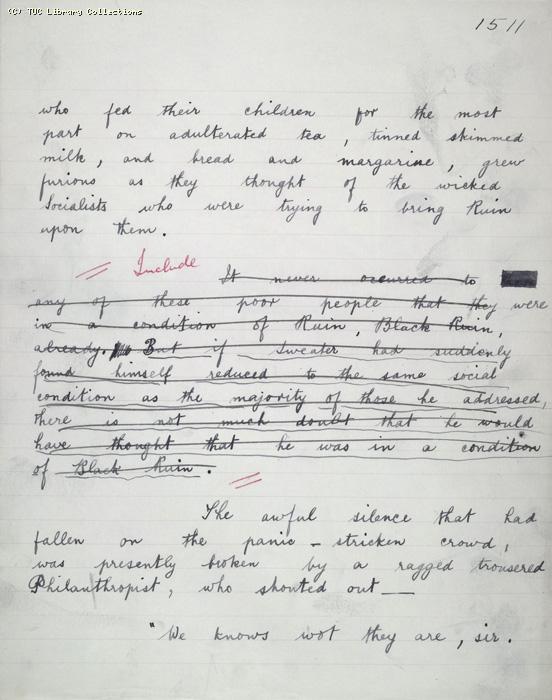 (C) TUC Library Collections
1511
who fed their children for the most
part on adulterated tea, tinned skimmed
milk, and bread and margarine, grew
furious as they thought of the wicked
Socialists who were trying to bring Ruin
upon them.
Include
It never occurred to
any of these poor people that they were
in a condition of Ruin, Black Ruin,
already. But if Sweater had suddenly
found himself reduced to the same social
condition as the majority of those he addressed,
there is not much doubt that he would
have thought that he was in a condition
of Black Ruin.
The awful silence that had
fallen on the panic-stricken crowd,
was presently broken by a ragged trousered
Philanthropist, who shouted out—
"We knows wot they are, sir.